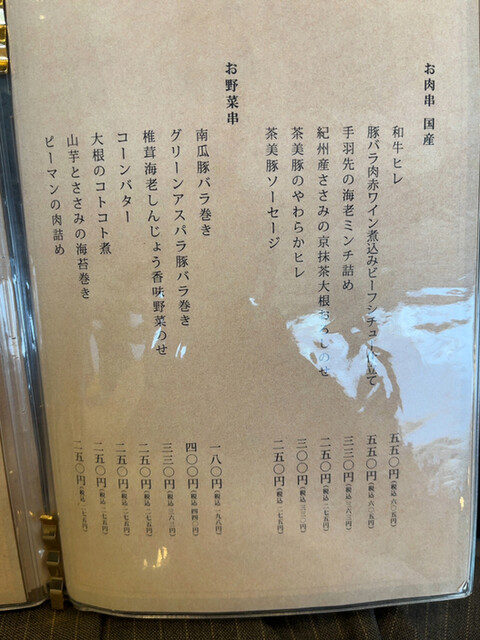 お肉串 国産
和牛ヒレ 五五〇円(税込 六〇五円)
豚バラ肉赤ワイン煮込みビーフシチュー仕立て 五五〇円(税込 六〇五円)
手羽先の海老ミンチ詰め 三三〇円(税込 三六三円)
紀州産ささみの京抹茶大根おろしのせ 二五〇円(税込 二七五円)
茶美豚のやわらかヒレ 三〇〇円(税込 三三〇円)
茶美豚ソーセージ 二五〇円(税込 二七五円)
お野菜串
南瓜豚バラ巻き 一八〇円(税込 一九八円)
グリーンアスパラ豚バラ巻き 四〇〇円(税込 四四〇円)
椎茸海老しんじょう香味野菜のせ 三三〇円(税込 三六三円)
コーンバター 二五〇円(税込 二七五円)
大根のコトコト煮 二五〇円(税込 二七五円)
山芋とささみの海苔巻き 二五〇円(税込 二七五円)
ピーマンの肉詰め 二五〇円(税込 二七五円)